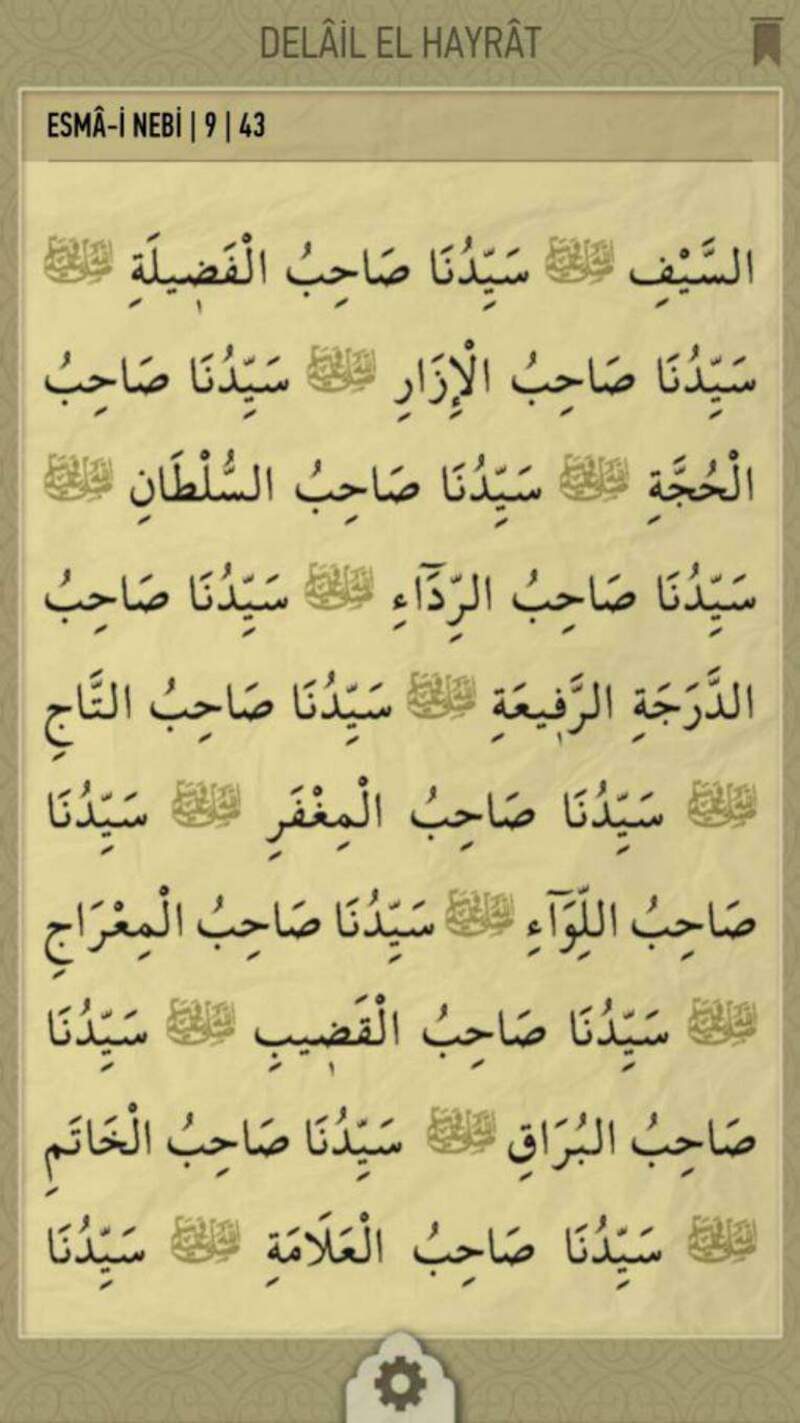 DELÂİL EL HAYRÂT
ESMÂ-İ NEBİ | 9 | 43
السَّيْفِ ﷺ سَيِّدُنَا صَاحِبُ الْفَضِيلَةِ ﷺ
سَيِّدُنَا صَاحِبُ الْإِزَارِ ﷺ سَيِّدُنَا صَاحِبُ
الْحُجَّةِ ﷺ سَيِّدُنَا صَاحِبُ السُّلْطَانِ ﷺ
سَيِّدُنَا صَاحِبُ الرِّدَٓاءِ ﷺ سَيِّدُنَا صَاحِبُ
الدَّرَجَةِ الرَّفِيعَةِ ﷺ سَيِّدُنَا صَاحِبُ التَّاجِ
ﷺ سَيِّدُنَا صَاحِبُ الْمِغْفَرِ ﷺ سَيِّدُنَا
صَاحِبُ اللِّوَٓاءِ ﷺ سَيِّدُنَا صَاحِبُ الْمِعْرَاجِ
ﷺ سَيِّدُنَا صَاحِبُ الْقَضِيبِ ﷺ سَيِّدُنَا
صَاحِبُ الْبُرَاقِ ﷺ سَيِّدُنَا صَاحِبُ الْخَاتَمِ
ﷺ سَيِّدُنَا صَاحِبُ الْعَلَامَةِ ﷺ سَيِّدُنَا